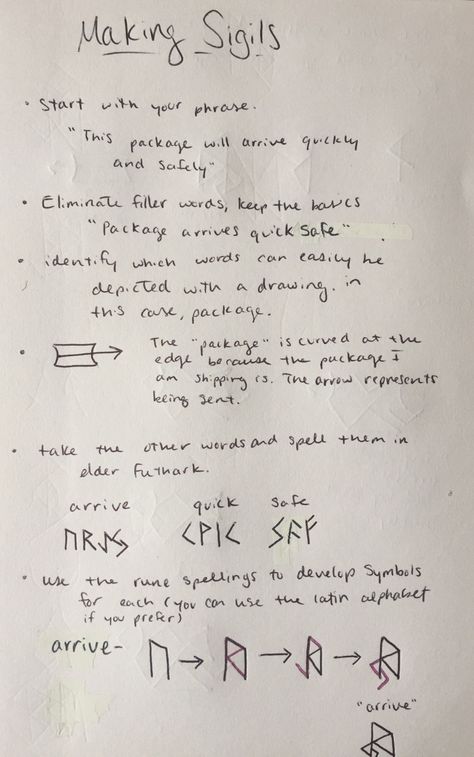 Making Sigils
• Start with your phrase.
"This package will arrive quickly
and safely"
• Eliminate filler words, keep the basics
"Package arrives quick safe"
• identify which words can easily be
depicted with a drawing. in
this case, package.
• The "package" is curved at the
edge because the package I
am shipping is. The arrow represents
being sent.
• take the other words and spell them in
elder Futhark.
arrive quick safe
ᚢᚱᛇᛃ ᚲᚹᛁᚲ ᛊᚨᚠ
• use the rune spellings to develop symbols
for each (you can use the latin alphabet
if you prefer)
arrive- ᚢ → → →
"arrive"